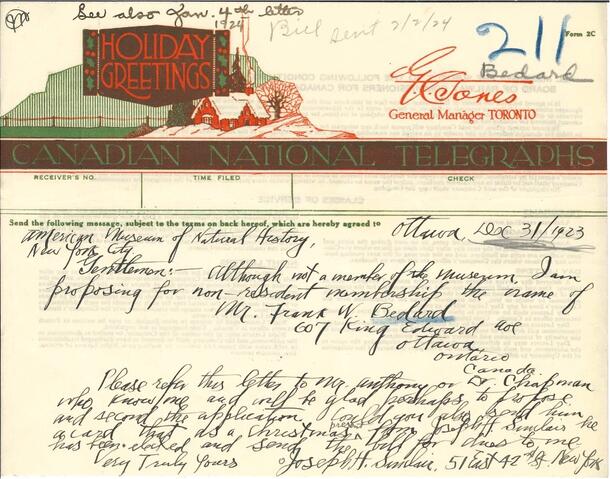 See also Jan. 4th letter
1924
Bill sent 2/2/24
211
Form 2C
Bedard
HOLIDAY
GREETINGS
General Manager TORONTO
CANADIAN NATIONAL TELEGRAPHS
RECEIVER'S NO. TIME FILED CHECK
Send the following message, subject to the terms on back hereof, which are hereby agreed to
Ottawa, Dec 31/1923
American Museum of Natural History,
New York City
Gentlemen:- Although not a member of the museum, I am
proposing for non-resident membership the name of
Mr. Frank W. Bedard
607 King Edward ave
Ottawa
Ontario
Canada
Please refer this letter to Mr. Anthony or Dr Chapman
who know me and will be glad perhaps to propose
and second the application. Could you also send him
a card that as a Christmas present from Joseph H. Sinclair he
has been elected and send the bill for dues to me.
Very Truly Yours Joseph H. Sinclair, 51 East 42nd St. New York